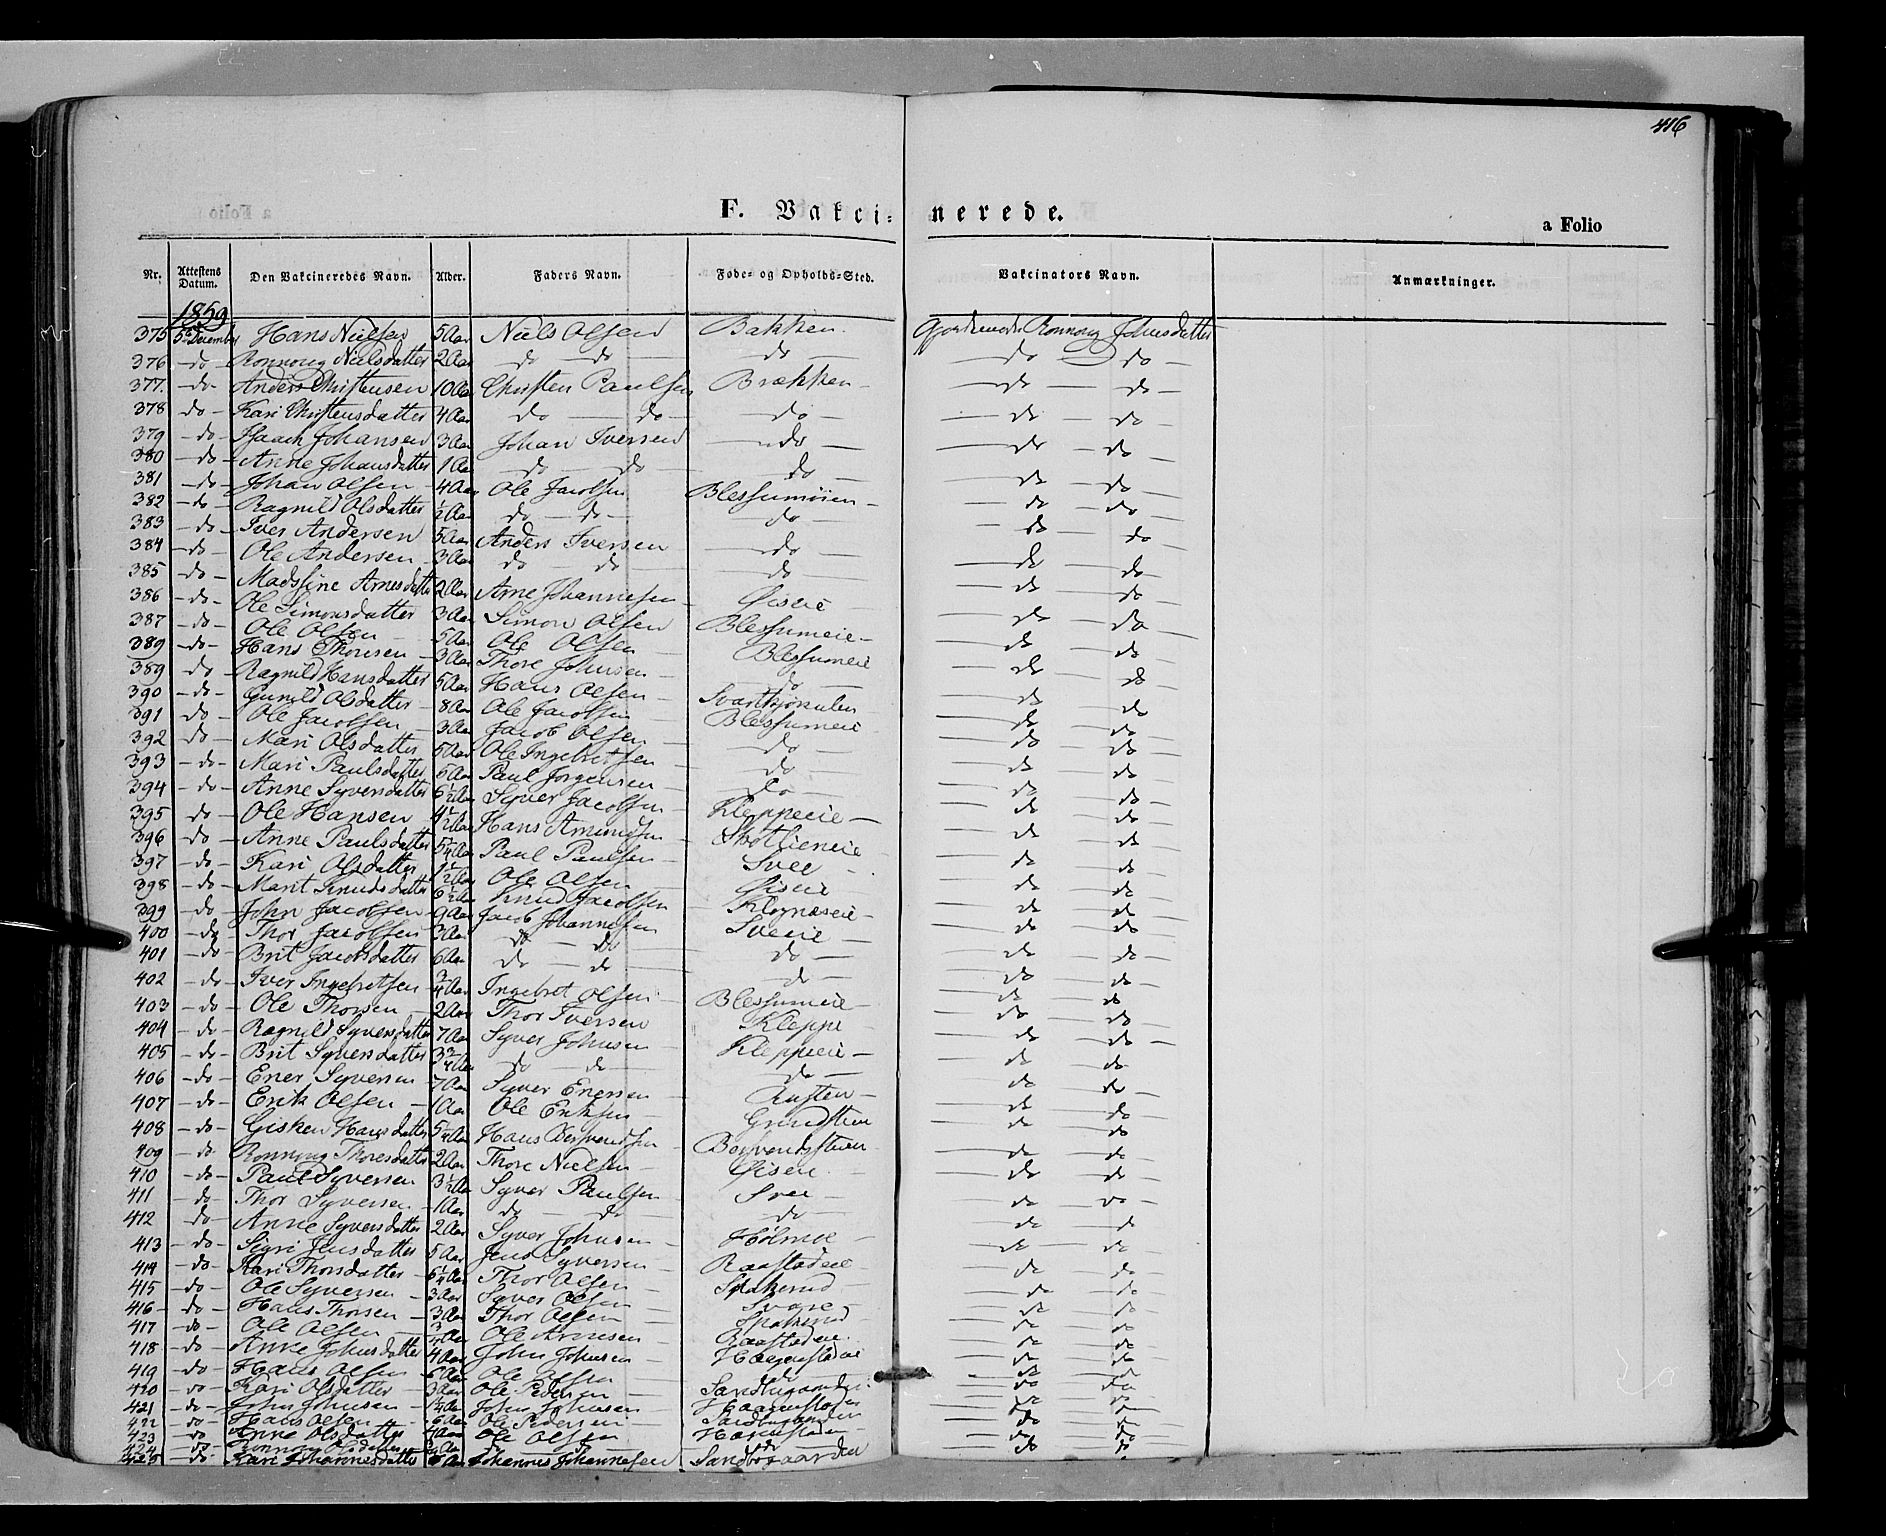 416
F. Vakci-nerede.
a Folio
Nr. Attestens Datum. Den Vakcineredes Navn. Alder. Faders Navn. Føde- og Opholds-Sted. Vakcinators Navn. Anmærkninger.
1859
375 5te December Hans Nielsen 5 Aar Niels Olsen Bakken Ronnoug Johnsdatter
376 do Ronnoug Nielsdatter 2 Aar do do do do do
377 do Anders Christensen 10 Aar Christen Paulsen Brækken do do
378 do Kari Christensdatter 4 Aar do do do do do
379 do Isaach Johansen 3 Aar Johan Iversen do do do
380 do Anne Johansdatter 1 Aar do do do do do
381 do Johan Olsen 4 Aar Ole Jacobsen Blessumöien do do
382 do Ragnild Olsdatter ½ Aar do do do do do
383 do Iver Andersen 5 Aar Anders Iversen do do do
384 do Ole Andersen 3 Aar do do do do do
385 do Madsline Arnesdatter 2 Aar Arne Johannesen Öiseie do do
386 do Ole Simonsdatter 3 Aar Simon Olsen Blessumeie do do
387 do Ole Olsen 5 Aar Ole Olsen Blessumeie do do
389 do Hans Thoresen 3 Aar Thore Johnsen do do do
389 do Ragnild Hansdatter 5 Aar Hans Olsen do do
390 do Gunild Olsdatter 8 Aar Ole Jacobsen do do
391 do Ole Jacobsen 3 Aar Jacob Olsen Blessumeie do do
392 do Mari Olsdatter 5 Aar Ole Ingebretsen do do do
393 do Mari Paulsdatter 5 Aar Paul Jorgensen do do do
394 do Anne Syversdatter 6½ Aar Syver Jacobsen do do do
395 do Ole Hansen 4½ Aar Hans Amundsen Kleppeeie do do
396 do Anne Paulsdatter Paul Paulsen do do
397 do Kari Olsdatter 1½ Aar Ole Olsen Svee do do
398 do Marit Knudsdatter 6½ Aar Knud Jacobsen Öiseie do do
399 do John Jacobsen 9 Aar Jacob Johannesen do do
400 do Thor Jacobsen 3 Aar do do Sveeie do do
401 do Brit Jacobsdatter 6 Aar do do do do do
402 do Iver Ingebretsen ¾ Aar Ingebret Olsen do do do
403 do Ole Thorsen 2 Aar Thor Iversen Blessumeie do do
404 do Ragnild Syversdatter 7 Aar Syver Johnsen Kleppe do do
405 do Brit Syversdatter 3¾ Aar do do Kleppeeie do do
406 do Ener Syversen 7 Aar Syver Enersen do do do
407 do Erik Olsen 1 Aar Ole Eriksen do do
408 do Gisken Hansdatter Hans do do
409 do Ronnoug Thoresdatter 2 Aar Thore Nielsen do do
410 do Paul Syversen 3½ Aar Syver Paulsen Öiseie do do
411 do Thor Syversen 1 Aar do do Svee do do
412 do Anne Syversdatter 2 Aar Syver Johnsen do do do
413 do Sigri Jensdatter 5 Aar Jens Syversen do do
414 do Kari Thorsdatter Thor Olsen Raastadeie do do
415 do Ole Syversen 3 Aar Syver Olsen do do
416 do Hans Thorsen 3 Aar Thor Olsen do do
417 do Ole Olsen ¾ Aar Ole Arnesen do do
418 do Anne Johnsdatter 4 Aar John Johnsen Raastadeie do do
419 do Hans Olsen 6 Aar Ole Olsen do do
420 do Kari Olsdatter 3 Aar Ole Pedersen do do
421 do John Johnsen John Johnsen do do
422 do Hans Olsen 6 Aar Ole Pedersen do do
423 do Anne Olsdatter 4 Aar Ole Olsen do do
424 do Ronnoug Olsdatter do do do do do
425 do Kari Johannesdatter Johannes Johannesen Sandbogaarden do do